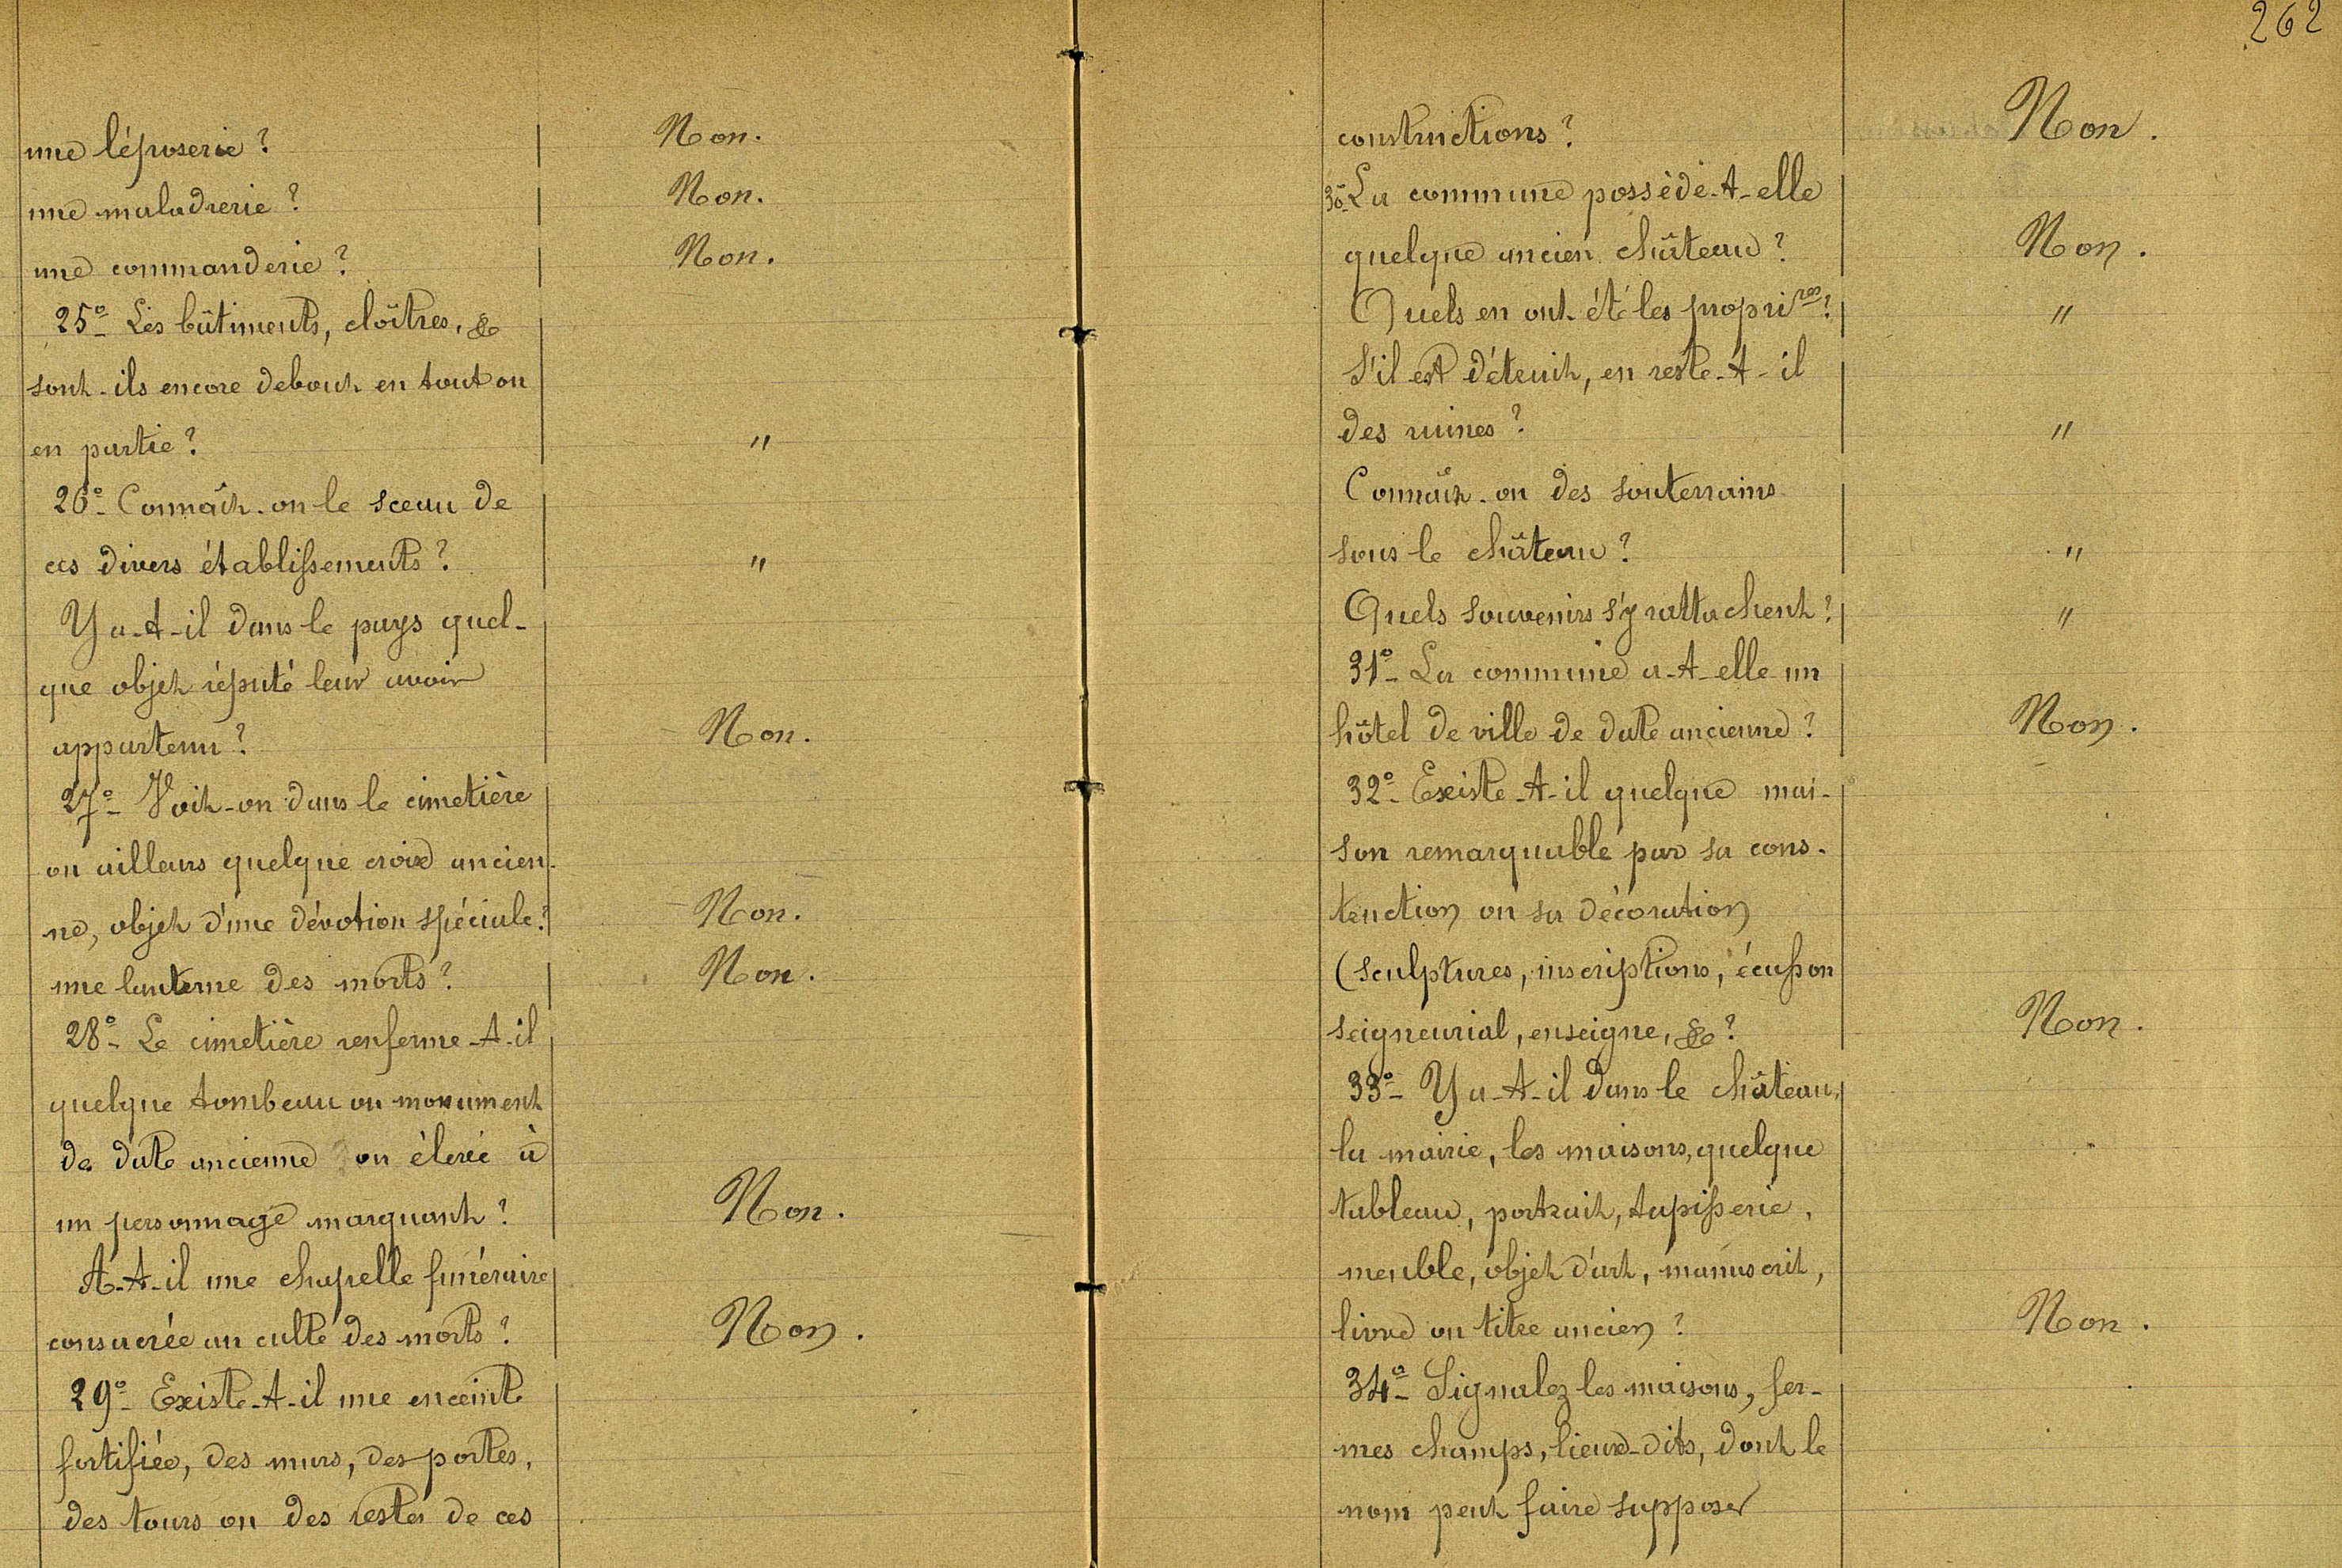 une léproserie ? Non.
une maladrerie ? Non.
une commanderie ? Non.
25º- Les bâtiments, cloîtres, &
sont-ils encore debout en tout ou
en partie ? "
26º- Connaît-on le sceau de
ces divers établissements ? "
Y a-t-il dans le pays quel-
que objet réputé leur avoir
appartenu ? Non.
27º- Voit-on dans le cimetière
ou ailleurs quelque croix ancien-
ne, objet d'une dévotion spéciale ? Non.
une lanterne des morts ? Non.
28º- Le cimetière renferme-t-il
quelque tombeau ou monument
de date ancienne ou élevé à
un personnage marquant ? Non.
A-t-il une chapelle funéraire
consacrée au culte des morts ? Non.
29º- Existe-t-il une enceinte
fortifiée, des murs, des portes,
des tours ou des restes de ces
262
constructions ? Non.
30º- La commune possède-t-elle
quelque ancien château ? Non.
Quels en ont été les propri^res ? "
S'il est détruit, en reste-t-il
des ruines ? "
Connaît-on des souterrains
sous le château ? "
Quels souvenirs s'y rattachent ? "
31º- La commune a-t-elle un
hôtel de ville de date ancienne ? Non.
32º- Existe-t-il quelque mai-
son remarquable par sa cons-
truction ou sa décoration
(sculptures, inscriptions, écusson
seigneurial, enseigne, & ? Non.
33º- Y a-t-il dans le château,
la mairie, les maisons, quelque
tableau, portrait, tapisserie,
meuble, objet d'art, manuscrit,
livre ou titre ancien ? Non.
34º- Signalez les maisons, fer-
mes champs, lieux-dits, dont le
nom peut faire supposer